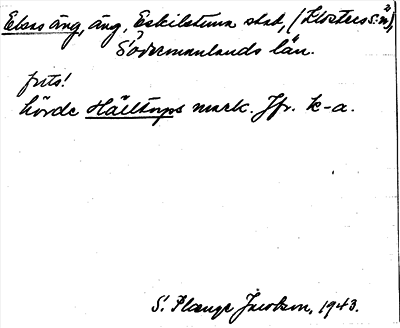 Ebbas äng, äng, Eskilstuna stad, (Klosters s:n),
Södermanlands län.
frits!
hörde Hälltorps mark. Jfr. k-a.
S. Plange Jacobson, 1943.